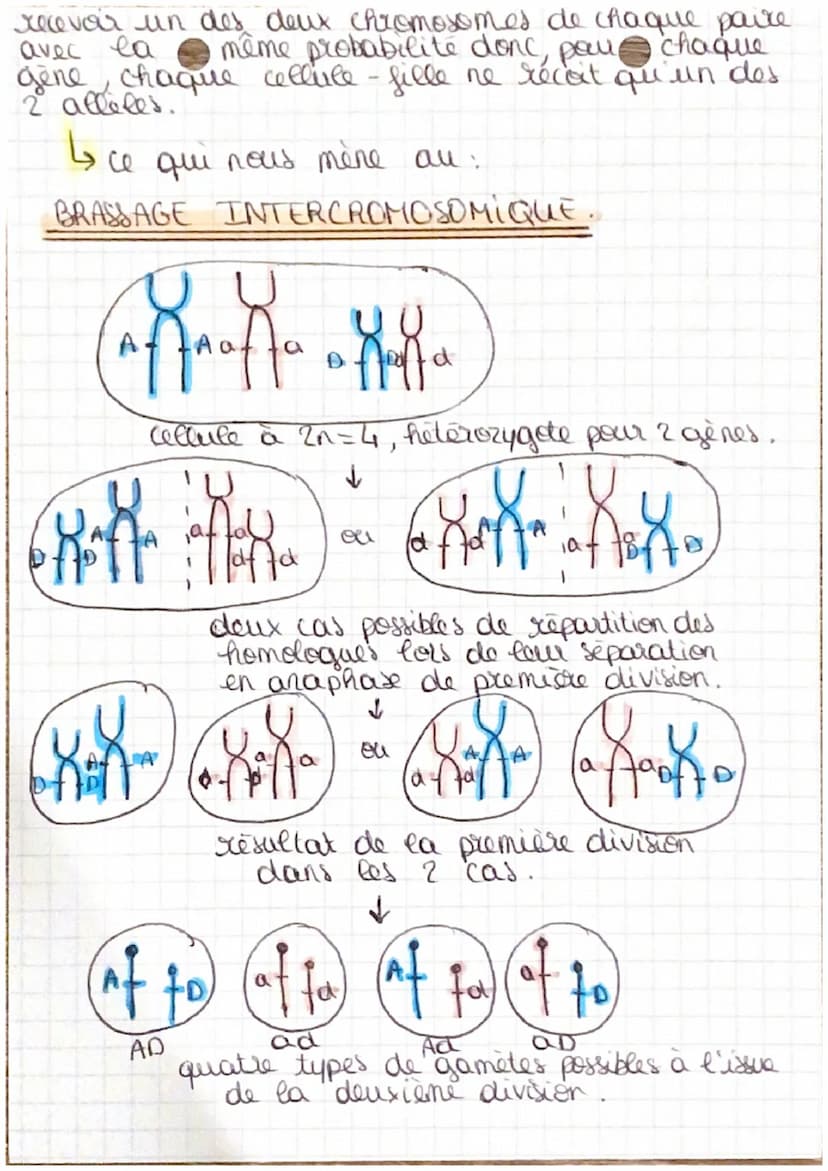 recevoir un des deux chromosomes de chaque paire
avec la même probabilité donc, pour chaque
gène, chaque cellule-fille ne reçoit qu'un des
2 allèles.
↳ ce qui nous mène au :
BRASSAGE INTERCROMOSOMIQUE.
A A a a D D d d
cellule à 2n=4, hétérozygote pour 2 gènes.
↓
D D A A a a d d ou d d A A a a D D
deux cas possibles de répartition des
homologues lors de leur séparation
en anaphase de première division.
↓
D D A A d d a a ou d d A A a a D D
résultat de la première division
dans les 2 cas.
↓
A D a d A d a D
AD ad Ad aD
quatre types de gamètes possibles à l'issue
de la deuxième division.